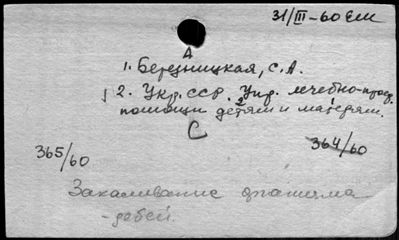 31/III-60 Еш
А
1. Березницкая, С.А.
2. Укр. ССР. Упр. лечебно-проф.
помощи детям и матерям.
2
С
365/60
364/60
Закаливание организма